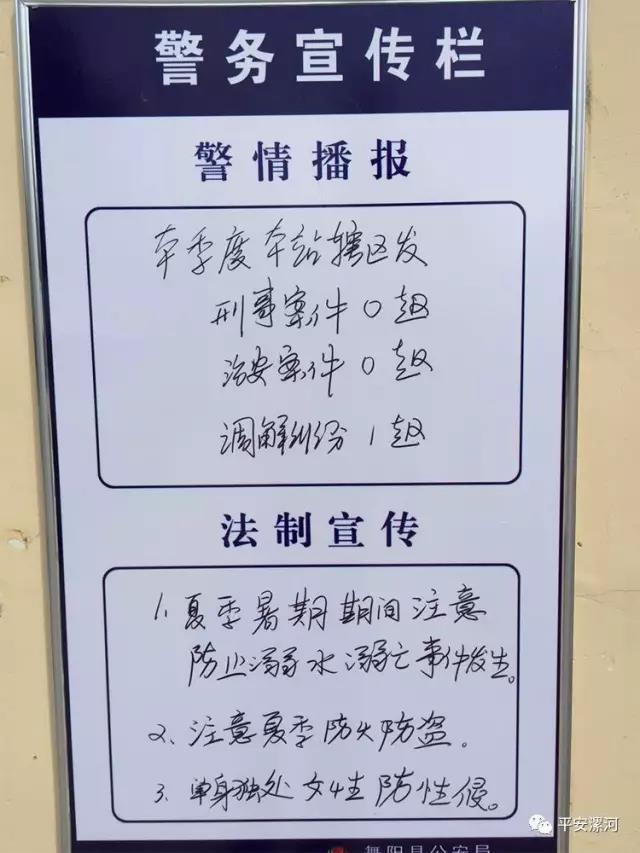 警务宣传栏
警情播报
本季度本站辖区发
刑事案件0起
治安案件0起
调解纠纷1起
法制宣传
1.夏季暑期期间注意
防止溺水溺亡事件发生。
2、注意夏季防火防盗。
3.单身独处女性防性侵。
舞阳县公安局
平安漯河